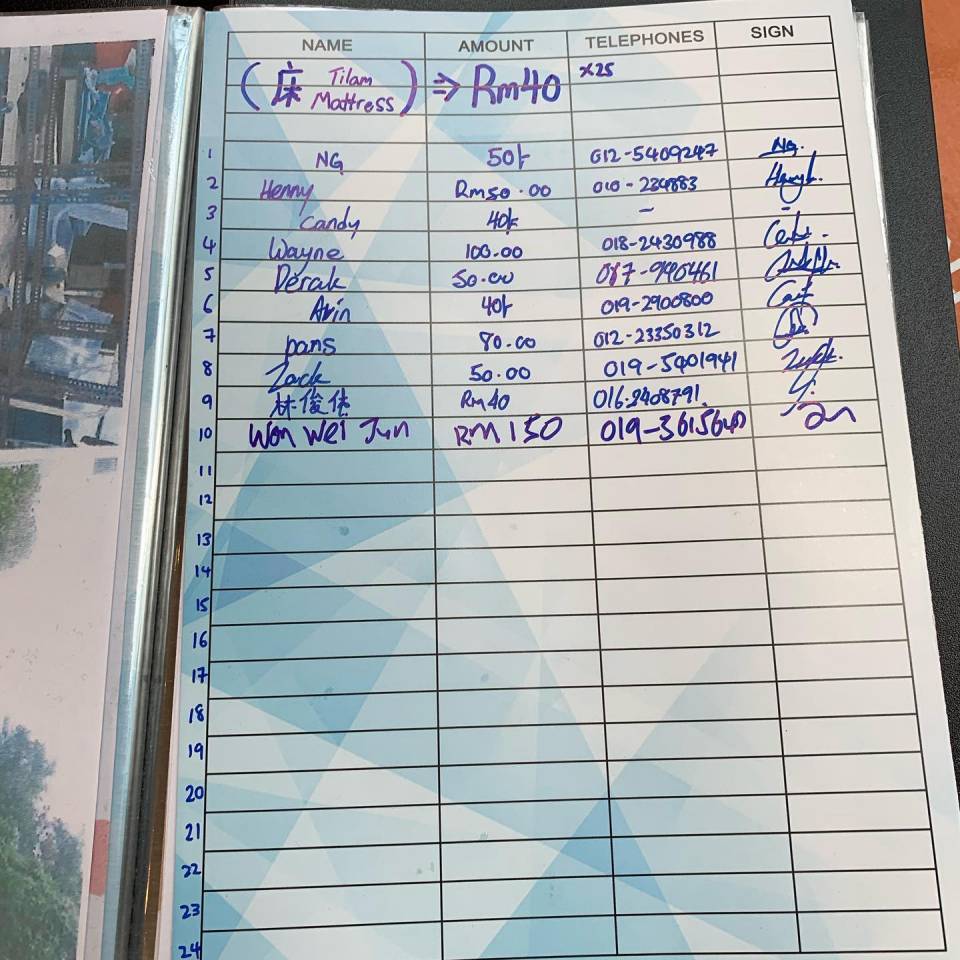 NAME AMOUNT TELEPHONES SIGN
(床 Tilam Mattress) ⇒ Rm40 x25
1 NG 50/- 012-5409247 Ng.
2 Henny Rm50.00 010-234883
3 Candy 40/- - -
4 Wayne 100.00 018-2430988
5 Derak 50.00 087-990461
6 Arin 40/- 019-2900800
7 pans 80.00 012-23350312
8 Zack 50.00 019-5401941
9 林俊 Rm40 016-9408791
10 Won Wei Jun RM150 019-3615640
11
12
13
14
15
16
17
18
19
20
21
22
23
24